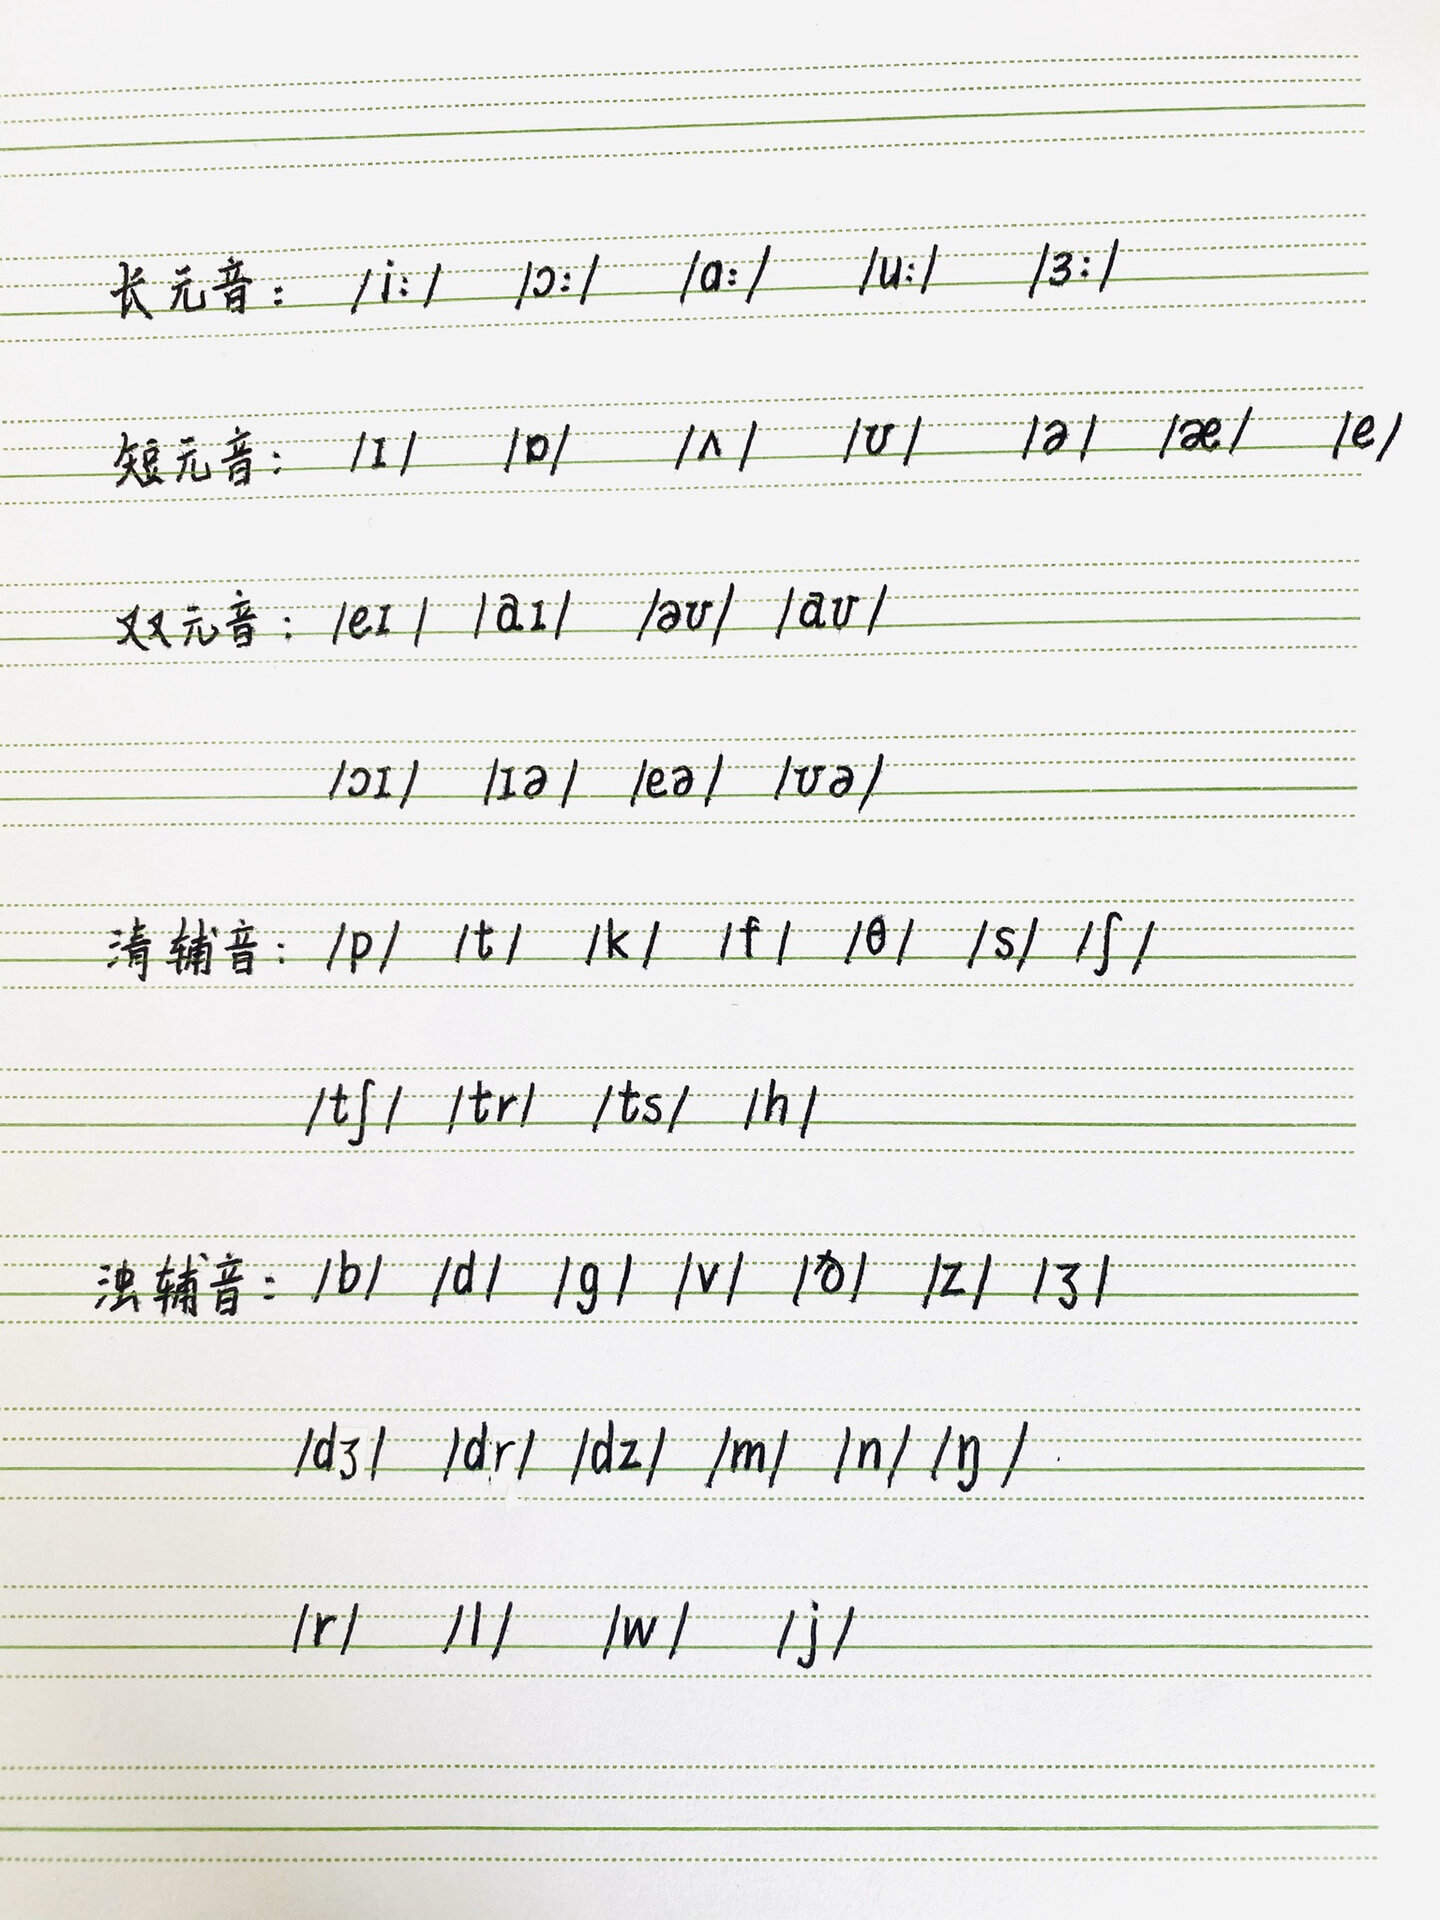 长元音： /i:/ /ɔ:/ /ɑ:/ /u:/ /ɜ:/
短元音： /ɪ/ /ɒ/ /ʌ/ /ʊ/ /ə/ /æ/ /e/
双元音： /eɪ/ /aɪ/ /əʊ/ /aʊ/
/ɔɪ/ /ɪə/ /eə/ /ʊə/
清辅音： /p/ /t/ /k/ /f/ /θ/ /s/ /ʃ/
/tʃ/ /tr/ /ts/ /h/
浊辅音： /b/ /d/ /g/ /v/ /ð/ /z/ /ʒ/
/dʒ/ /dr/ /dz/ /m/ /n/ /ŋ/
/r/ /l/ /w/ /j/